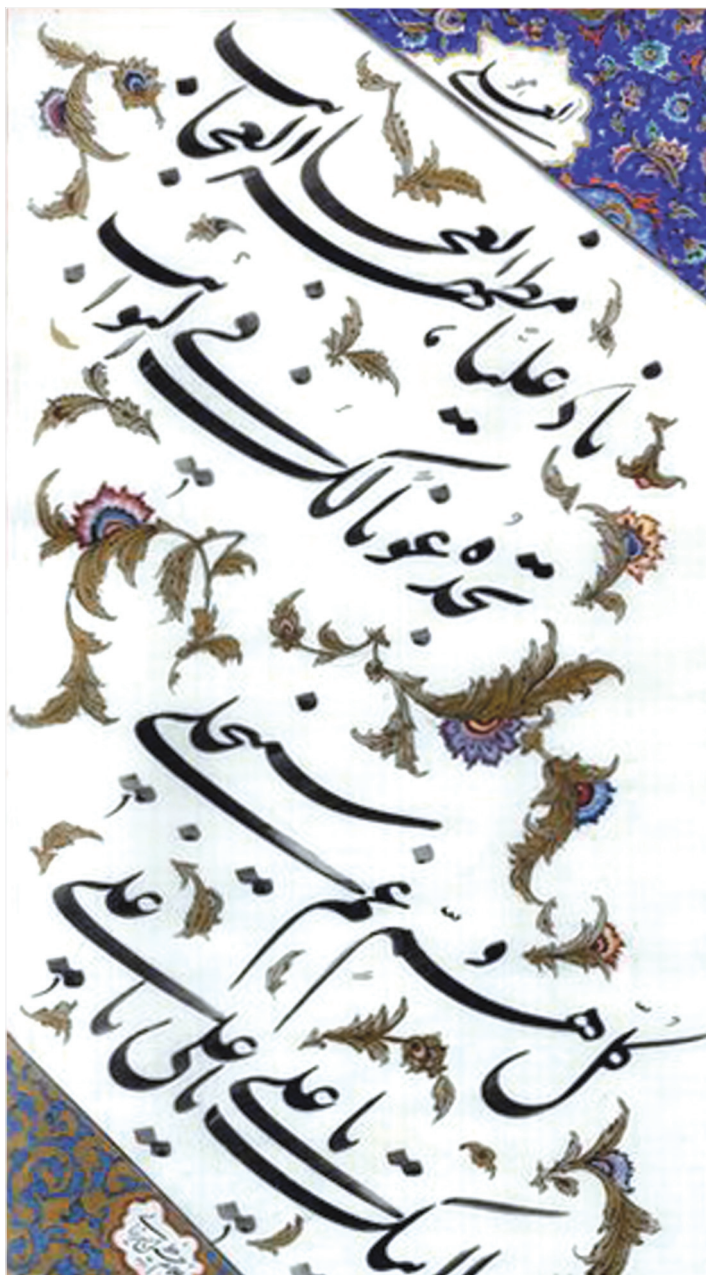 العلی
ناد علیاً مظهر العجائب
تجده عوناً لک فی النوائب
کل هم و غم سینجلی
یا علی یا علی یا علی